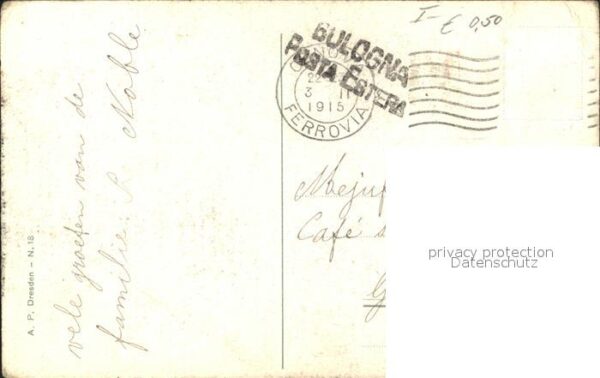 I- € 0,50
BOLOGNA
POSTA ESTERA
22
3 II
1915
FERROVIA
vele groeten van de
familie: P. Noble
Mejuf
Café
A. P. Dresden - N. 18
privacy protection
Datenschutz